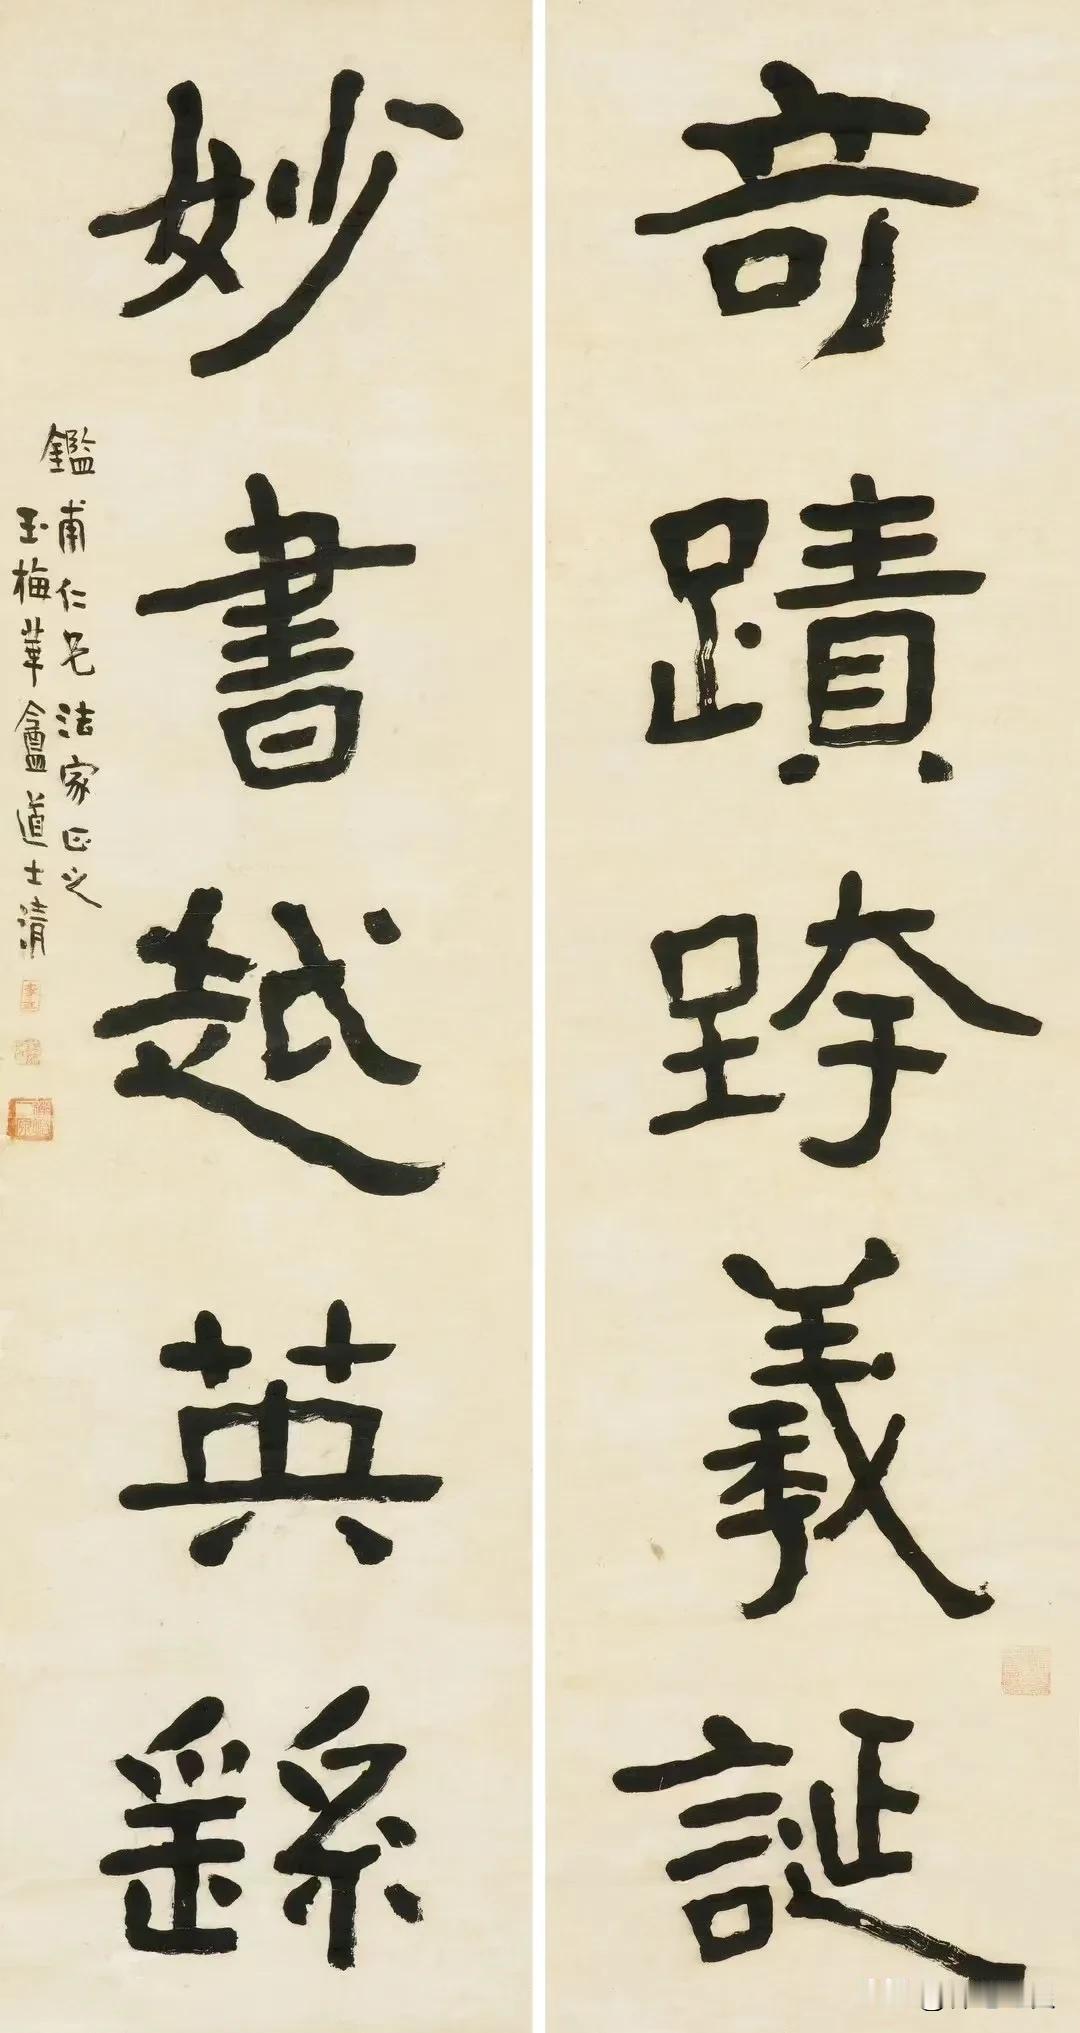 竒蹟跨羲誕
妙書越英繇
鑑甫仁兄法家正之
玉梅華盦道士清